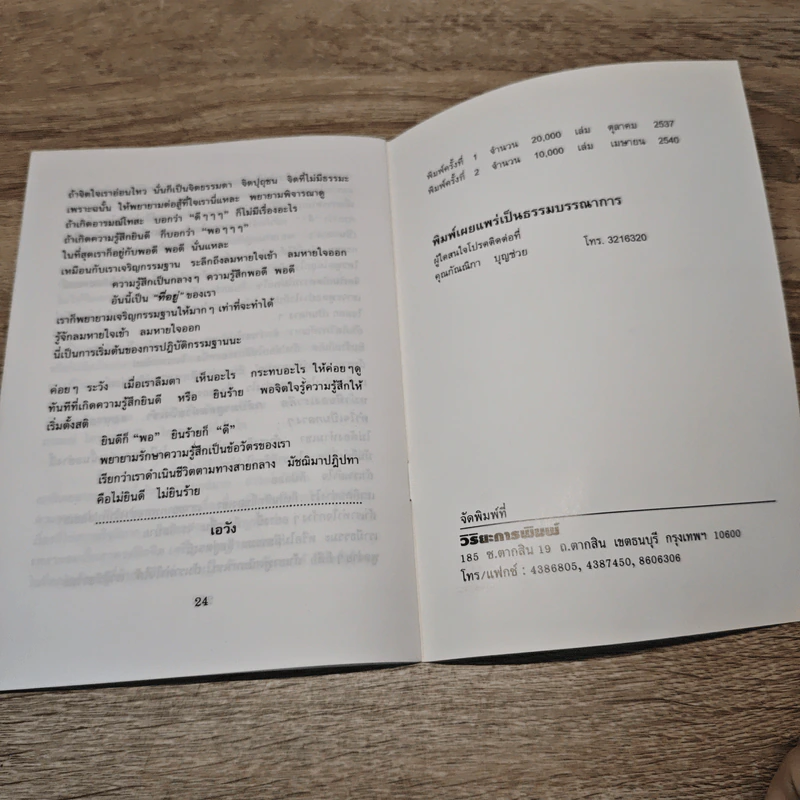 ถ้าจิตใจเราอ่อนไหว นั่นก็เป็นจิตธรรมดา จิตปุถุชน จิตที่ไม่มีธรรมะ
เพราะฉนั้น ให้พยายามต่อสู้ที่ใจเรานี่แหละ พยายามพิจารณาดู
ถ้าเกิดอารมณ์โทสะ บอกว่า "ดีๆๆๆ" ก็ไม่มีเรื่องอะไร
ถ้าเกิดความรู้สึกยินดี ก็บอกว่า "พอๆๆๆ"
ในที่สุดเราก็อยู่กับพอดี พอดี นั่นแหละ
เหมือนกับเราเจริญกรรมฐาน ระลึกถึงลมหายใจเข้า ลมหายใจออก
ความรู้สึกเป็นกลางๆ ความรู้สึกพอดี พอดี
อันนี้เป็น "ที่อยู่" ของเรา
เราก็พยายามเจริญกรรมฐานให้มากๆ เท่าที่จะทำได้
รู้จักลมหายใจเข้า ลมหายใจออก
นี่เป็นการเริ่มต้นของการปฏิบัติกรรมฐานนะ
ค่อยๆ ระวัง เมื่อเราลืมตา เห็นอะไร กระทบอะไร ให้ค่อยๆดู
ทันทีที่เกิดความรู้สึกยินดี หรือ ยินร้าย พอจิตใจรู้ความรู้สึกให้
เริ่มตั้งสติ
ยินดีก็ "พอ" ยินร้ายก็ "ดี"
พยายามรักษาความรู้สึกเป็นข้อวัตรของเรา
เรียกว่าเราดำเนินชีวิตตามทางสายกลาง มัชฌิมาปฏิปทา
คือไม่ยินดี ไม่ยินร้าย
เอวัง
24
พิมพ์ครั้งที่ 1 จำนวน 20,000 เล่ม ตุลาคม 2537
พิมพ์ครั้งที่ 2 จำนวน 10,000 เล่ม เมษายน 2540
พิมพ์เผยแพร่เป็นธรรมบรรณาการ
ผู้ใดสนใจโปรดติดต่อที่
คุณกัณณิกา บุญช่วย โทร. 3216320
จัดพิมพ์ที่
วิริยะการพิมพ์
185 ซ.ตากสิน 19 ถ.ตากสิน เขตธนบุรี กรุงเทพฯ 10600
โทร/แฟกซ์ : 4386805, 4387450, 8606306